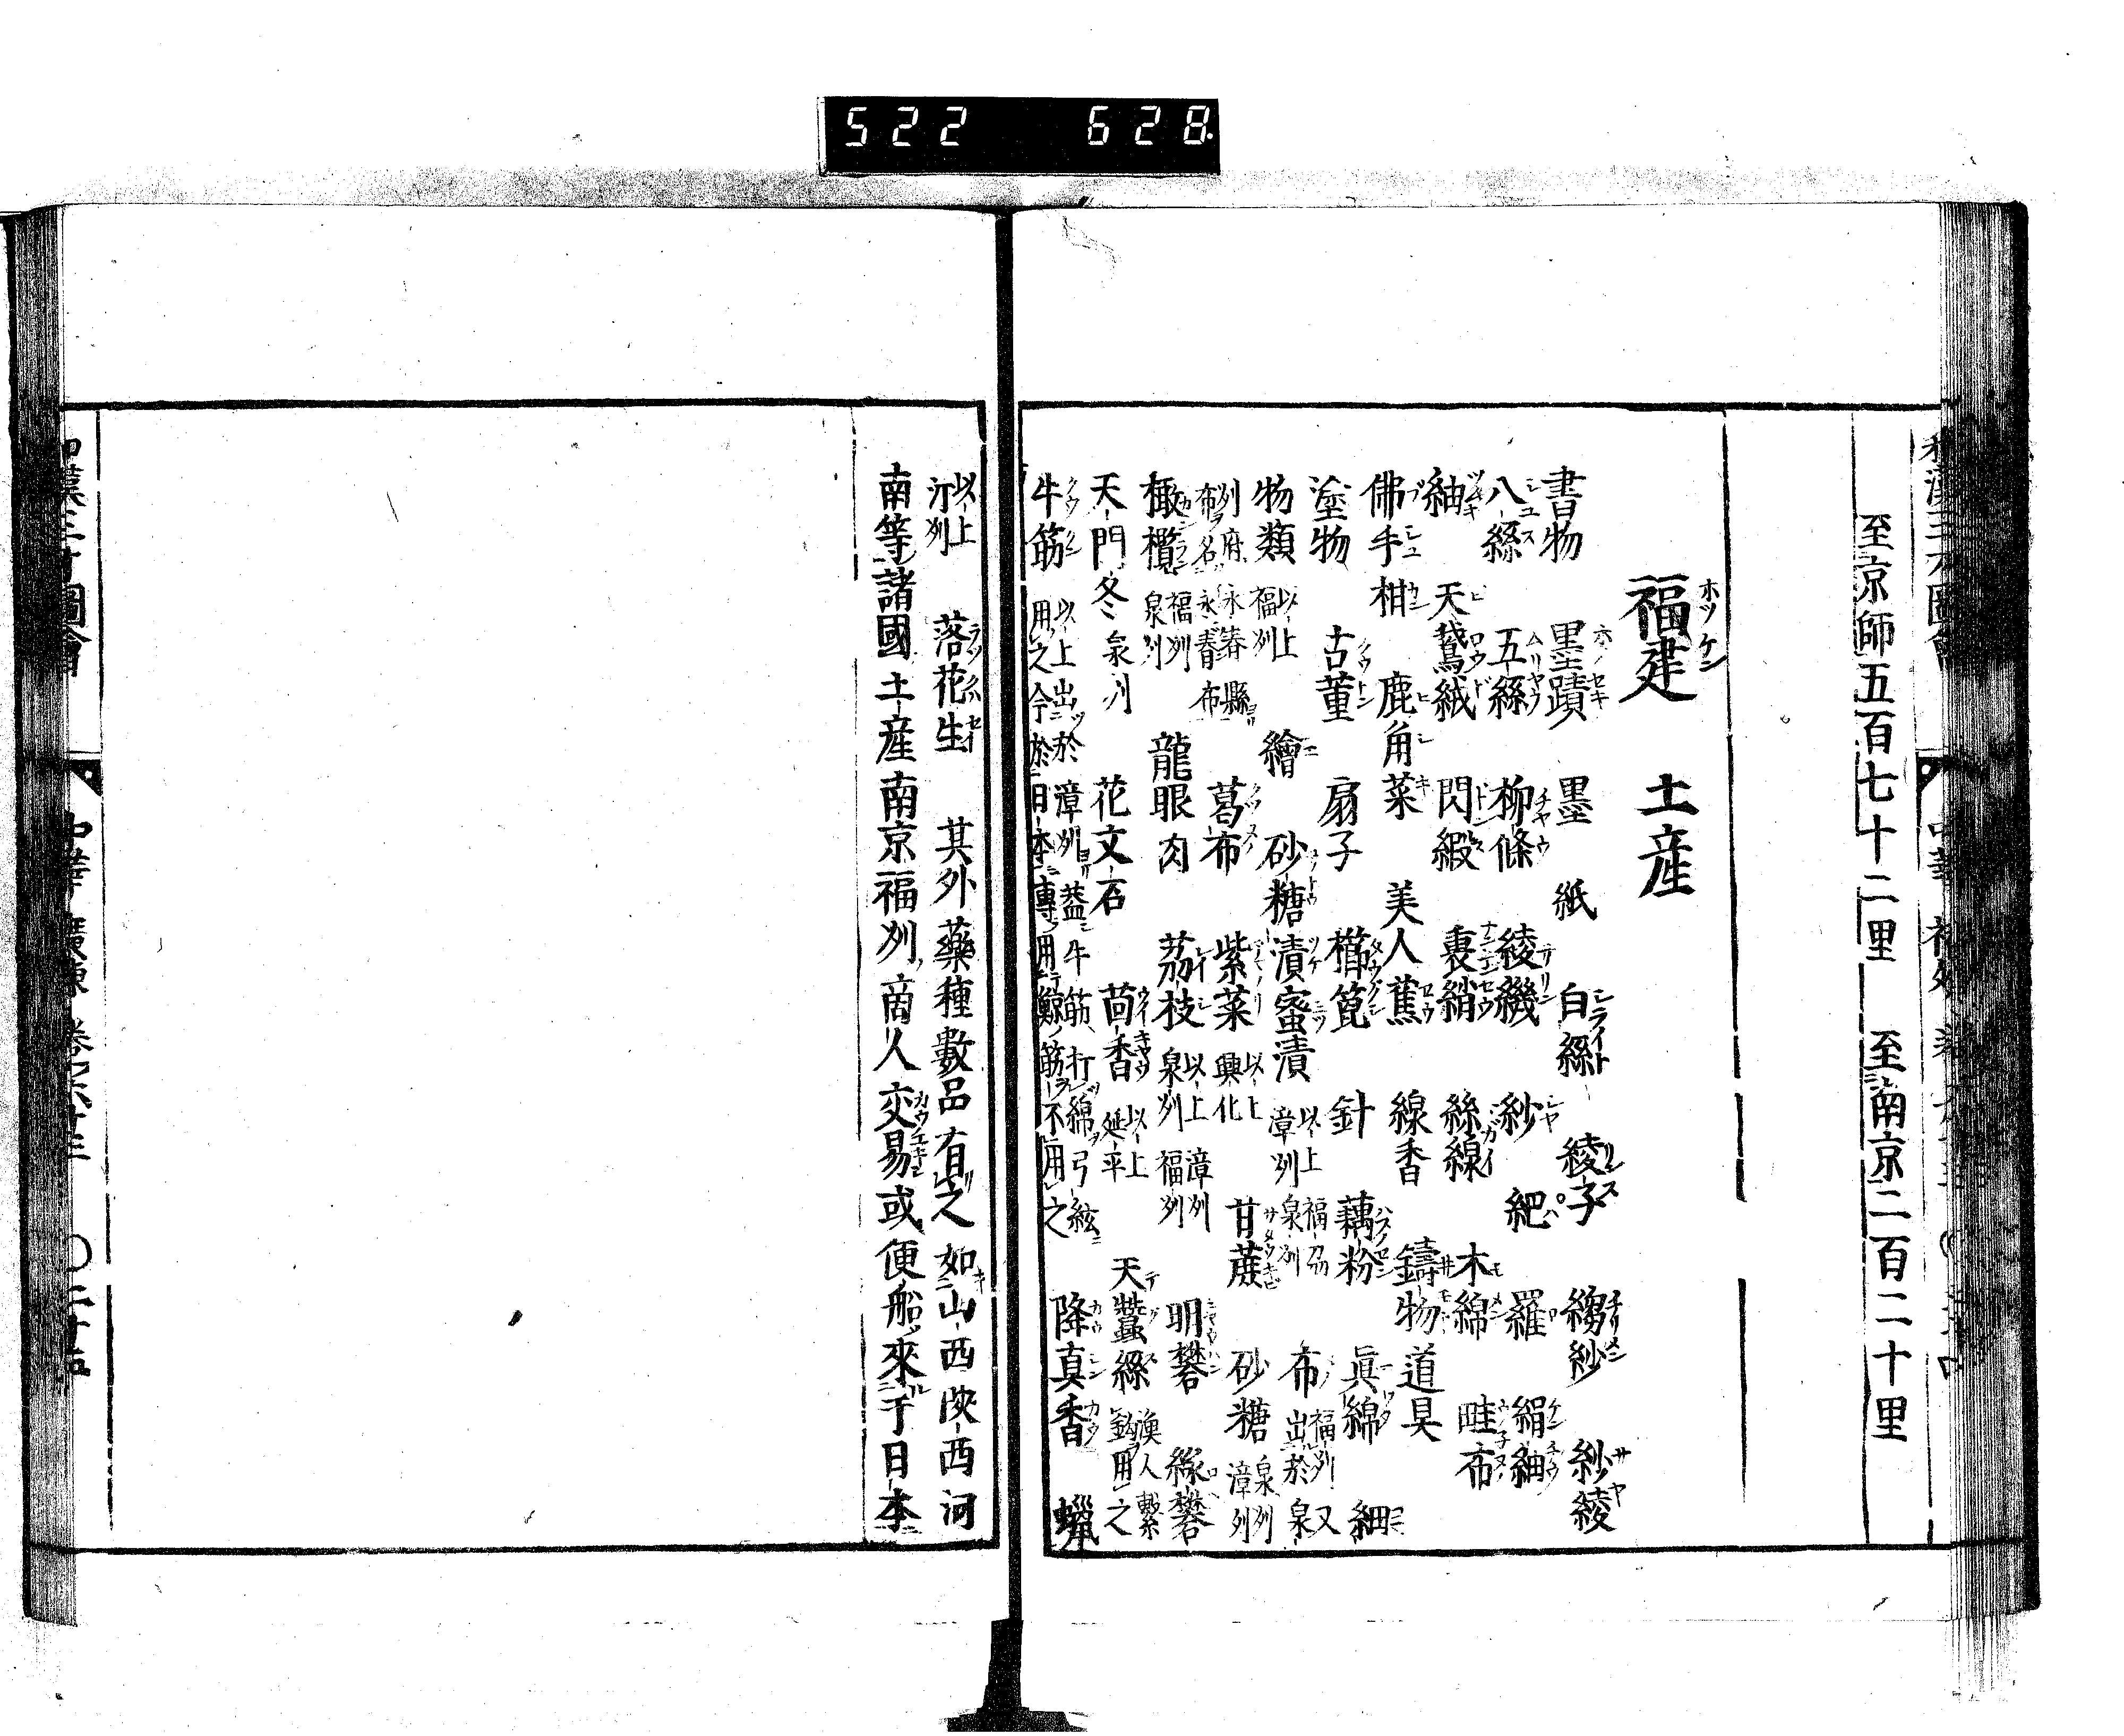 522 628.
至京師五百七十二里 至南京二百二十里
福建 土産
書物 墨蹟 墨 紙 白絲 綾子 縐紗 紗綾
八絲 五絲 柳條 綾機 紗 紦 羅 絹紬
紬 天鵞絨 閃緞 裏綃 絲線 木綿 畦布
佛手柑 鹿角菜 美人蕉 線香 鑄物道具
塗物 古董 扇子 櫛篦 針 藕粉 眞綿 細
物類 以上福州 繪 砂糖漬蜜漬 以上漳州 福州泉州 布 福州又出於泉
州府永春縣名永春布 葛布 紫菜 以上興化 甘蔗 砂糖 泉州漳州
橄欖 福州泉州 龍眼肉 荔枝 以上泉州 漳州福州 明礬 綠礬
天門冬 泉州 花文石 茴香 以上延平 天蠶絲 漁人繫鈎用之
牛筋 以上出於漳州 蓋牛筋打綿弓絃用之今於日本專用鯨筋不用之 降真香 蠟
以上汀州 落花生 其外藥種數品有之如山西陝西河
南等諸國土産南京福州商人交易或便船來于日本